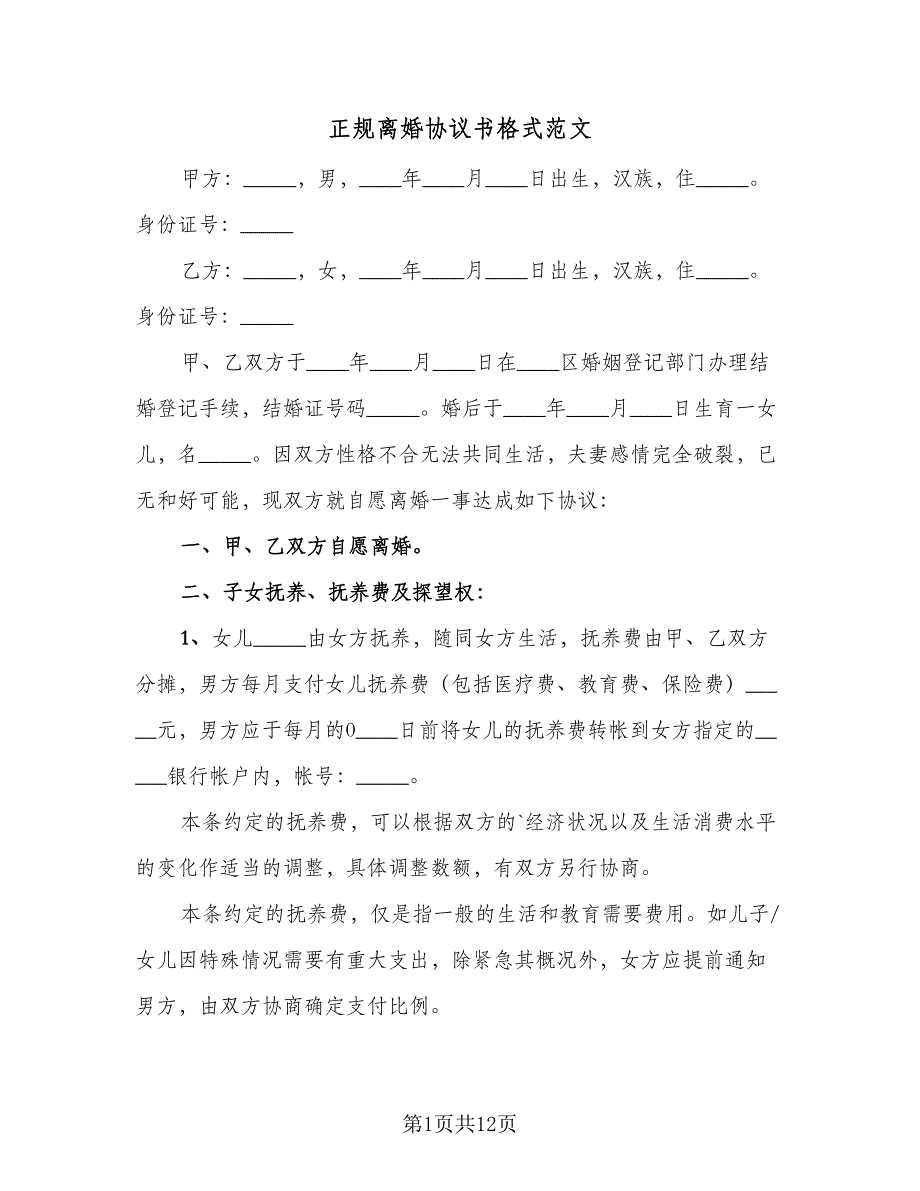 正规离婚协议书格式范文
甲方：_____，男，____年____月____日出生，汉族，住_____。
身份证号：_____
乙方：_____，女，____年____月____日出生，汉族，住_____。
身份证号：_____
甲、乙双方于____年____月____日在____区婚姻登记部门办理结
婚登记手续，结婚证号码_____。婚后于____年____月____日生育一女
儿，名_____。因双方性格不合无法共同生活，夫妻感情完全破裂，已
无和好可能，现双方就自愿离婚一事达成如下协议：
一、甲、乙双方自愿离婚。
二、子女抚养、抚养费及探望权：
1、女儿_____由女方抚养，随同女方生活，抚养费由甲、乙双方
分摊，男方每月支付女儿抚养费（包括医疗费、教育费、保险费）___
__元，男方应于每月的0____日前将女儿的抚养费转帐到女方指定的__
___银行帐户内，帐号：_____。
本条约定的抚养费，可以根据双方的`经济状况以及生活消费水平
的变化作适当的调整，具体调整数额，有双方另行协商。
本条约定的抚养费，仅是指一般的生活和教育需要费用。如儿子/
女儿因特殊情况需要有重大支出，除紧急其概况外，女方应提前通知
男方，由双方协商确定支付比例。
第1页共12页